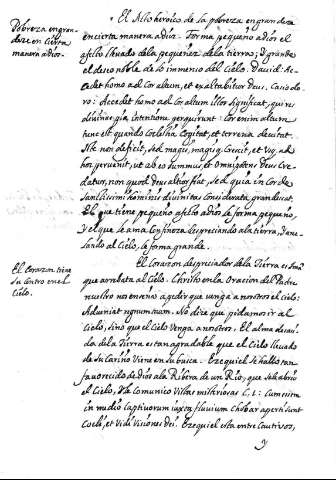 Pobreza engran-
dece en cierta
manera a dios.
El Acto heroico de la pobreza engrandeze
en cierta manera a dios. Forma pequeño a dios el
afecto llevado de la pequeñez de la tierra; y grande
el deseo noble de lo immenso del Cielo. David: Ac-
cedet homo ad Cor altum, et exaltabitur Deus, Casiodo-
ro: Accedet homo ad Cor altum illos significat, qui re
divinas pia, intentione perquirunt: Cor enim altum
tunc est quando Coelestia Cogitat, et terrena devitat.
Iste non deficit, sed magis, magisq. Crescit, et usq. ad
hoc pervenit, ut ab eo summus, et Omnipotens Deus Cre-
datur, non quod Deus altior fiat, sed quia in Corde
Sanctissimi hominis divinitas Considerata grandescit.
El que tiene pequeño afecto a dios le forma pequeño,
y el que le ama Con fineza despreciando a la tierra, y ane-
lando al Cielo, le forma grande.
El Corazon tiene
su Centro en el
Cielo.
El Corazon despreciador de la Tierra es Iman
que arrebata al Cielo. Christo en la Oracion del Padre
nuestro nos enseno a pedir que venga a nosotros el cielo:
Adveniat regnum tuum. No dize que pidamos ir al
Cielo, sino que el Cielo venga a nosotros. El alma desasi-
da de la Tierra es tan agradable que el Cielo llevado
de su Cariño viene en su busca. Ezequiel se hallo tan
favorecido de dios a la Ribera de un Rio, que se le abrio
el Cielo, y le Comunico Villas misteriosas C, 1: Cum essem
in medio Captivorum iuxta fluvium Chobar aperti sunt
Coeli, et vidi visiones Dei. Ezequiel esta entre Cautivos,
y